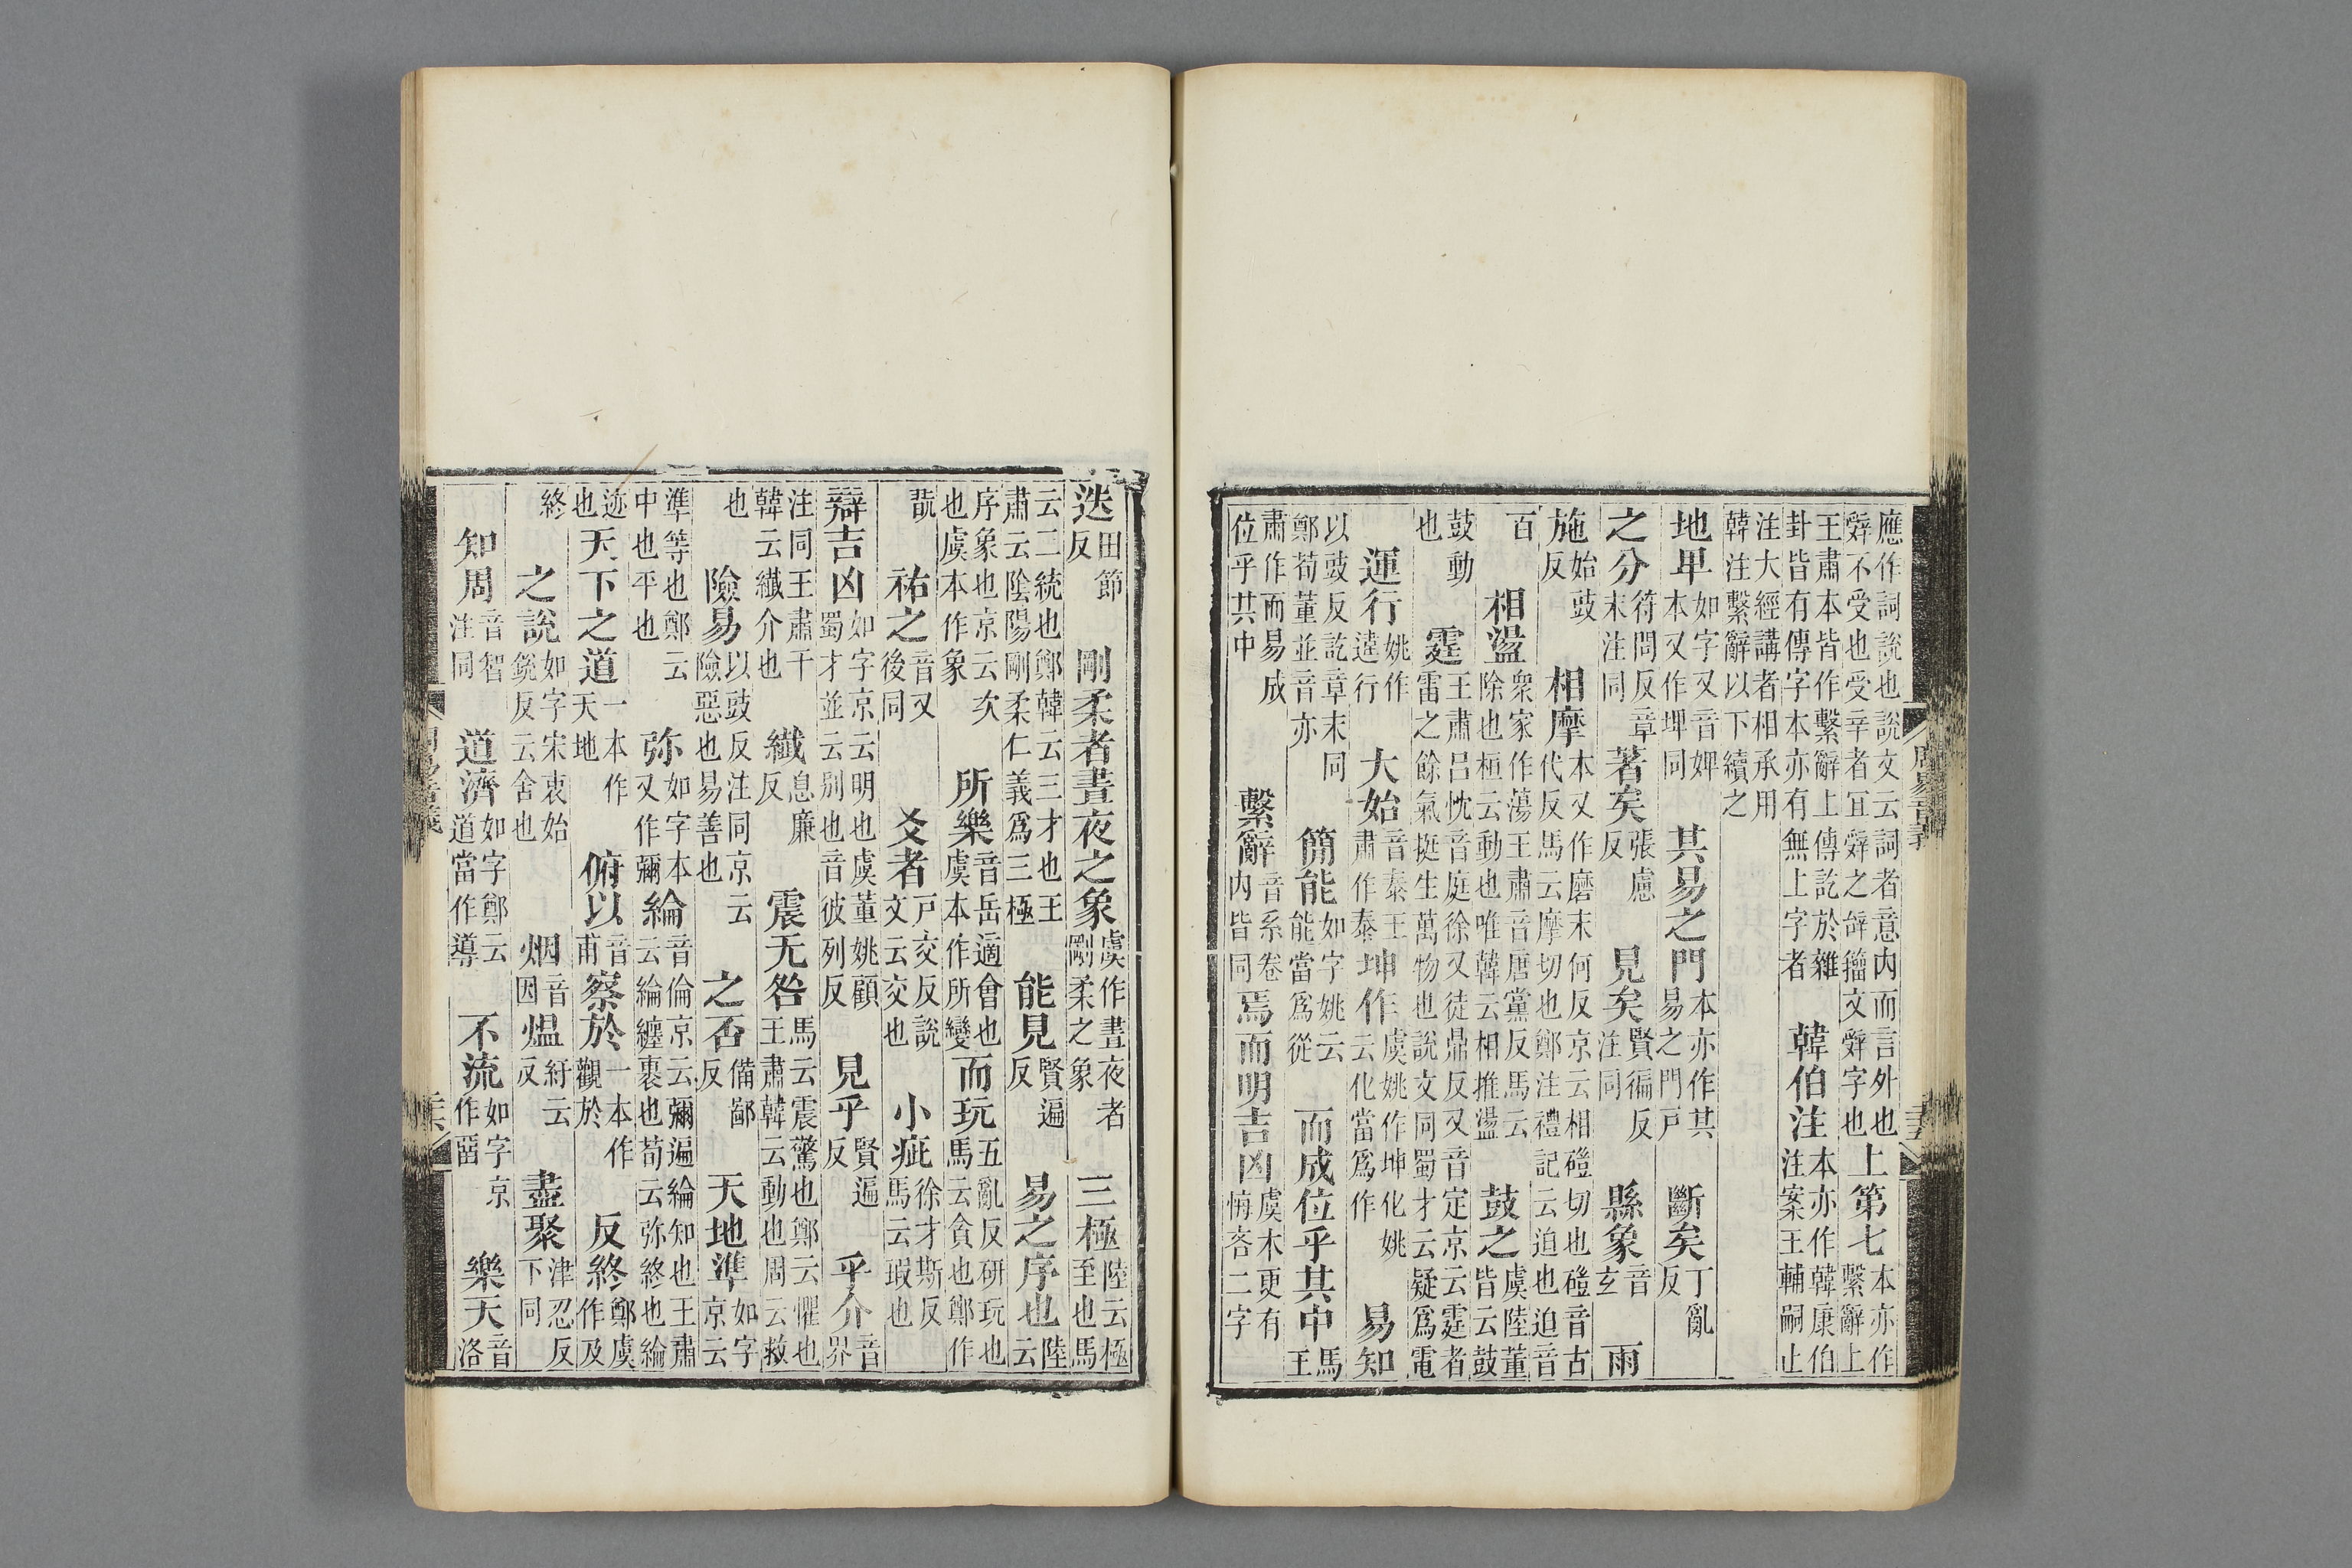 周易音義
三十五
應作詞說也說文云詞者意内而言外也辤不受也受辛者宜辤之辝籀文辤字也上第七本亦作繫辭上
王肅本皆作繫辭上傳訖於雜卦皆有傳字本亦有無上字者韓伯注本亦作韓康伯注案王輔嗣止
注大經講者相承用韓注繫辭以下續之
地卑如字又音婢本又作埤同其易之門本亦作其易之門戸斷矣丁亂反
之分符問反章末注同著矣張慮反見矣賢徧反注同縣象音玄雨
施始豉反相摩本又作磨末何反京云相磑切也磑音古代反馬云摩切也鄭注禮記云迫也迫音
百相盪衆家作蕩王肅音唐黨反馬云除也桓云動也唯韓云相推盪鼓之虞陸董皆云鼓
鼓動也霆王肅呂忱音庭徐又徒鼎反又音定京云霆者雷之餘氣挺生萬物也說文同蜀才云疑爲電
運行姚作違行大始音泰王肅作泰坤作虞姚作坤化姚云化當爲作易知
以豉反訖章末同鄭荀董並音亦簡能如字姚云能當爲從而成位乎其中馬王
肅作而易成位乎其中繫辭音系卷内皆同焉而明吉凶虞本更有悔吝二字
迭田節反剛柔者晝夜之象虞作晝夜者剛柔之象三極陸云極至也馬
云二統也鄭韓云三才也王肅云陰陽剛柔仁義爲三極能見賢遍反易之序也陸云
序象也京云次也虞本作象所樂音岳適會也虞本作所變而玩五亂反研玩也馬云貪也鄭作
翫祐之音又後同爻者戸交反說文云交也小疵徐才斯反馬云瑕也
辯吉凶如字京云明也虞董姚顧蜀才並云别也音彼列反見乎賢遍反乎介音界
注同王肅干韓云纖介也纖息廉反震无咎馬云震驚也鄭云懼也王肅韓云動也周云救
也險易以豉反注同京云險惡也易善也之否備鄙反天地準如字京云
準等也鄭云中也平也弥如字本又作彌綸音倫京云彌遍綸知也王肅云綸纏裹也荀云弥終也綸
迹也天下之道一本作天地俯以音甫察於一本作觀於反終鄭虞作及
終之說如字宋衷始銳反云舍也烟音因熅紆云反盡聚津忍反下同
知周音智注同道濟如字鄭云道當作導不流如字京作畱樂天音洛